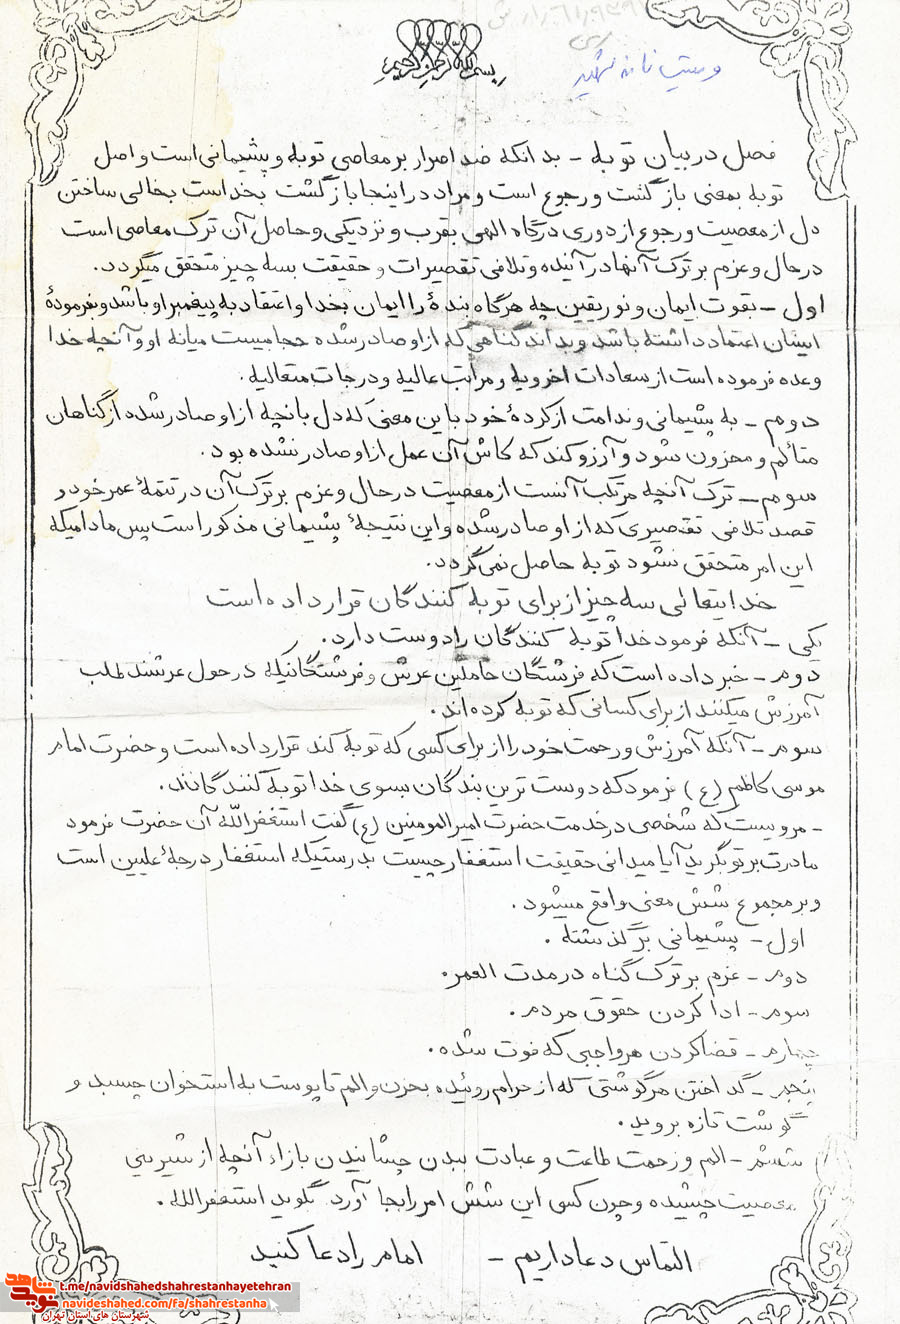 بسم الله الرحمن الرحیم
وصیت نامه شهید
فصل در بیان توبه - بدانکه ضد اصرار بر معاصی توبه و پشیمانی است و اصل
توبه بمعنی بازگشت و رجوع است و مراد در اینجا بازگشت بخداست بخالی ساختن
دل از معصیت و رجوع از دوری درگاه الهی بقرب و نزدیکی و حاصل آن ترک معاصی است
در حال و عزم بر ترک آنها در آینده و تلافی تقصیرات و حقیقت بسه چیز متحقق میگردد.
اول - بقوت ایمان و نور یقین چه هرگاه بندهٔ را ایمان بخدا و اعتقاد به پیغمبر او باشد و بفرمودهٔ
ایشان اعتماد داشته باشد و بداند گناهی که از او صادر شده حجابیست میانه او و آنچه خدا
وعده فرموده است از سعادات اخرویه و مراتب عالیه و درجات متعالیه.
دوم - به پشیمانی و ندامت از کردهٔ خود باین معنی که دل بانچه از او صادر شده از گناهان
متألم و محزون شود و آرزو کند که کاش آن عمل از او صادر نشده بود.
سوم - ترک آنچه مرتکب آنست از معصیت در حال و عزم بر ترک آن در تتمهٔ عمر خود و
قصد تلافی تقصیری که از او صادر شده و این نتیجهٔ پشیمانی مذکور است پس مادامیکه
این امر متحقق نشود توبه حاصل نمی‌گردد.
خدایتعالی سه چیز از برای توبه کنندگان قرار داده است
یکی - آنکه فرمود خدا توبه کنندگان را دوست دارد.
دوم - خبر داده است که فرشتگان حاملین عرش و فرشتگانیکه در حول عرشند طلب
آمرزش میکنند از برای کسانی که توبه کرده‌اند.
سوم - آنکه آمرزش و رحمت خود را از برای کسی که توبه کند قرار داده است و حضرت امام
موسی کاظم (ع) فرمود که دوست ترین بندگان بسوی خدا توبه کنندگانند.
- مرویست که شخصی در خدمت حضرت امیرالمومنین (ع) گفت استغفرالله آن حضرت فرمود
مادرت بر تو بگرید آیا میدانی حقیقت استغفار چیست بدرستیکه استغفار درجهٔ علیین است
و بر مجموع شش معنی واقع میشود.
اول - پشیمانی بر گذشته.
دوم - عزم بر ترک گناه در مدت العمر.
سوم - ادا کردن حقوق مردم.
چهارم - قضا کردن هر واجبی که فوت شده.
پنجم - گداختن هر گوشتی که از حرام روئیده بحزن و الم تا پوست به استخوان چسبد و
گوشت تازه بروید.
ششم - الم و زحمت طاعت و عبادت ببدن چشانیدن بازاء آنچه از شیرینی
معصیت چشیده و چون کسی این شش امر را بجا آورد بگوید استغفرالله.
التماس دعا داریم - امام را دعا کنید
t.me/navidshahedshahrestanhayetehran
navideshahed.com/fa/shahrestanha
نوید شاهد
شهرستان های استان تهران